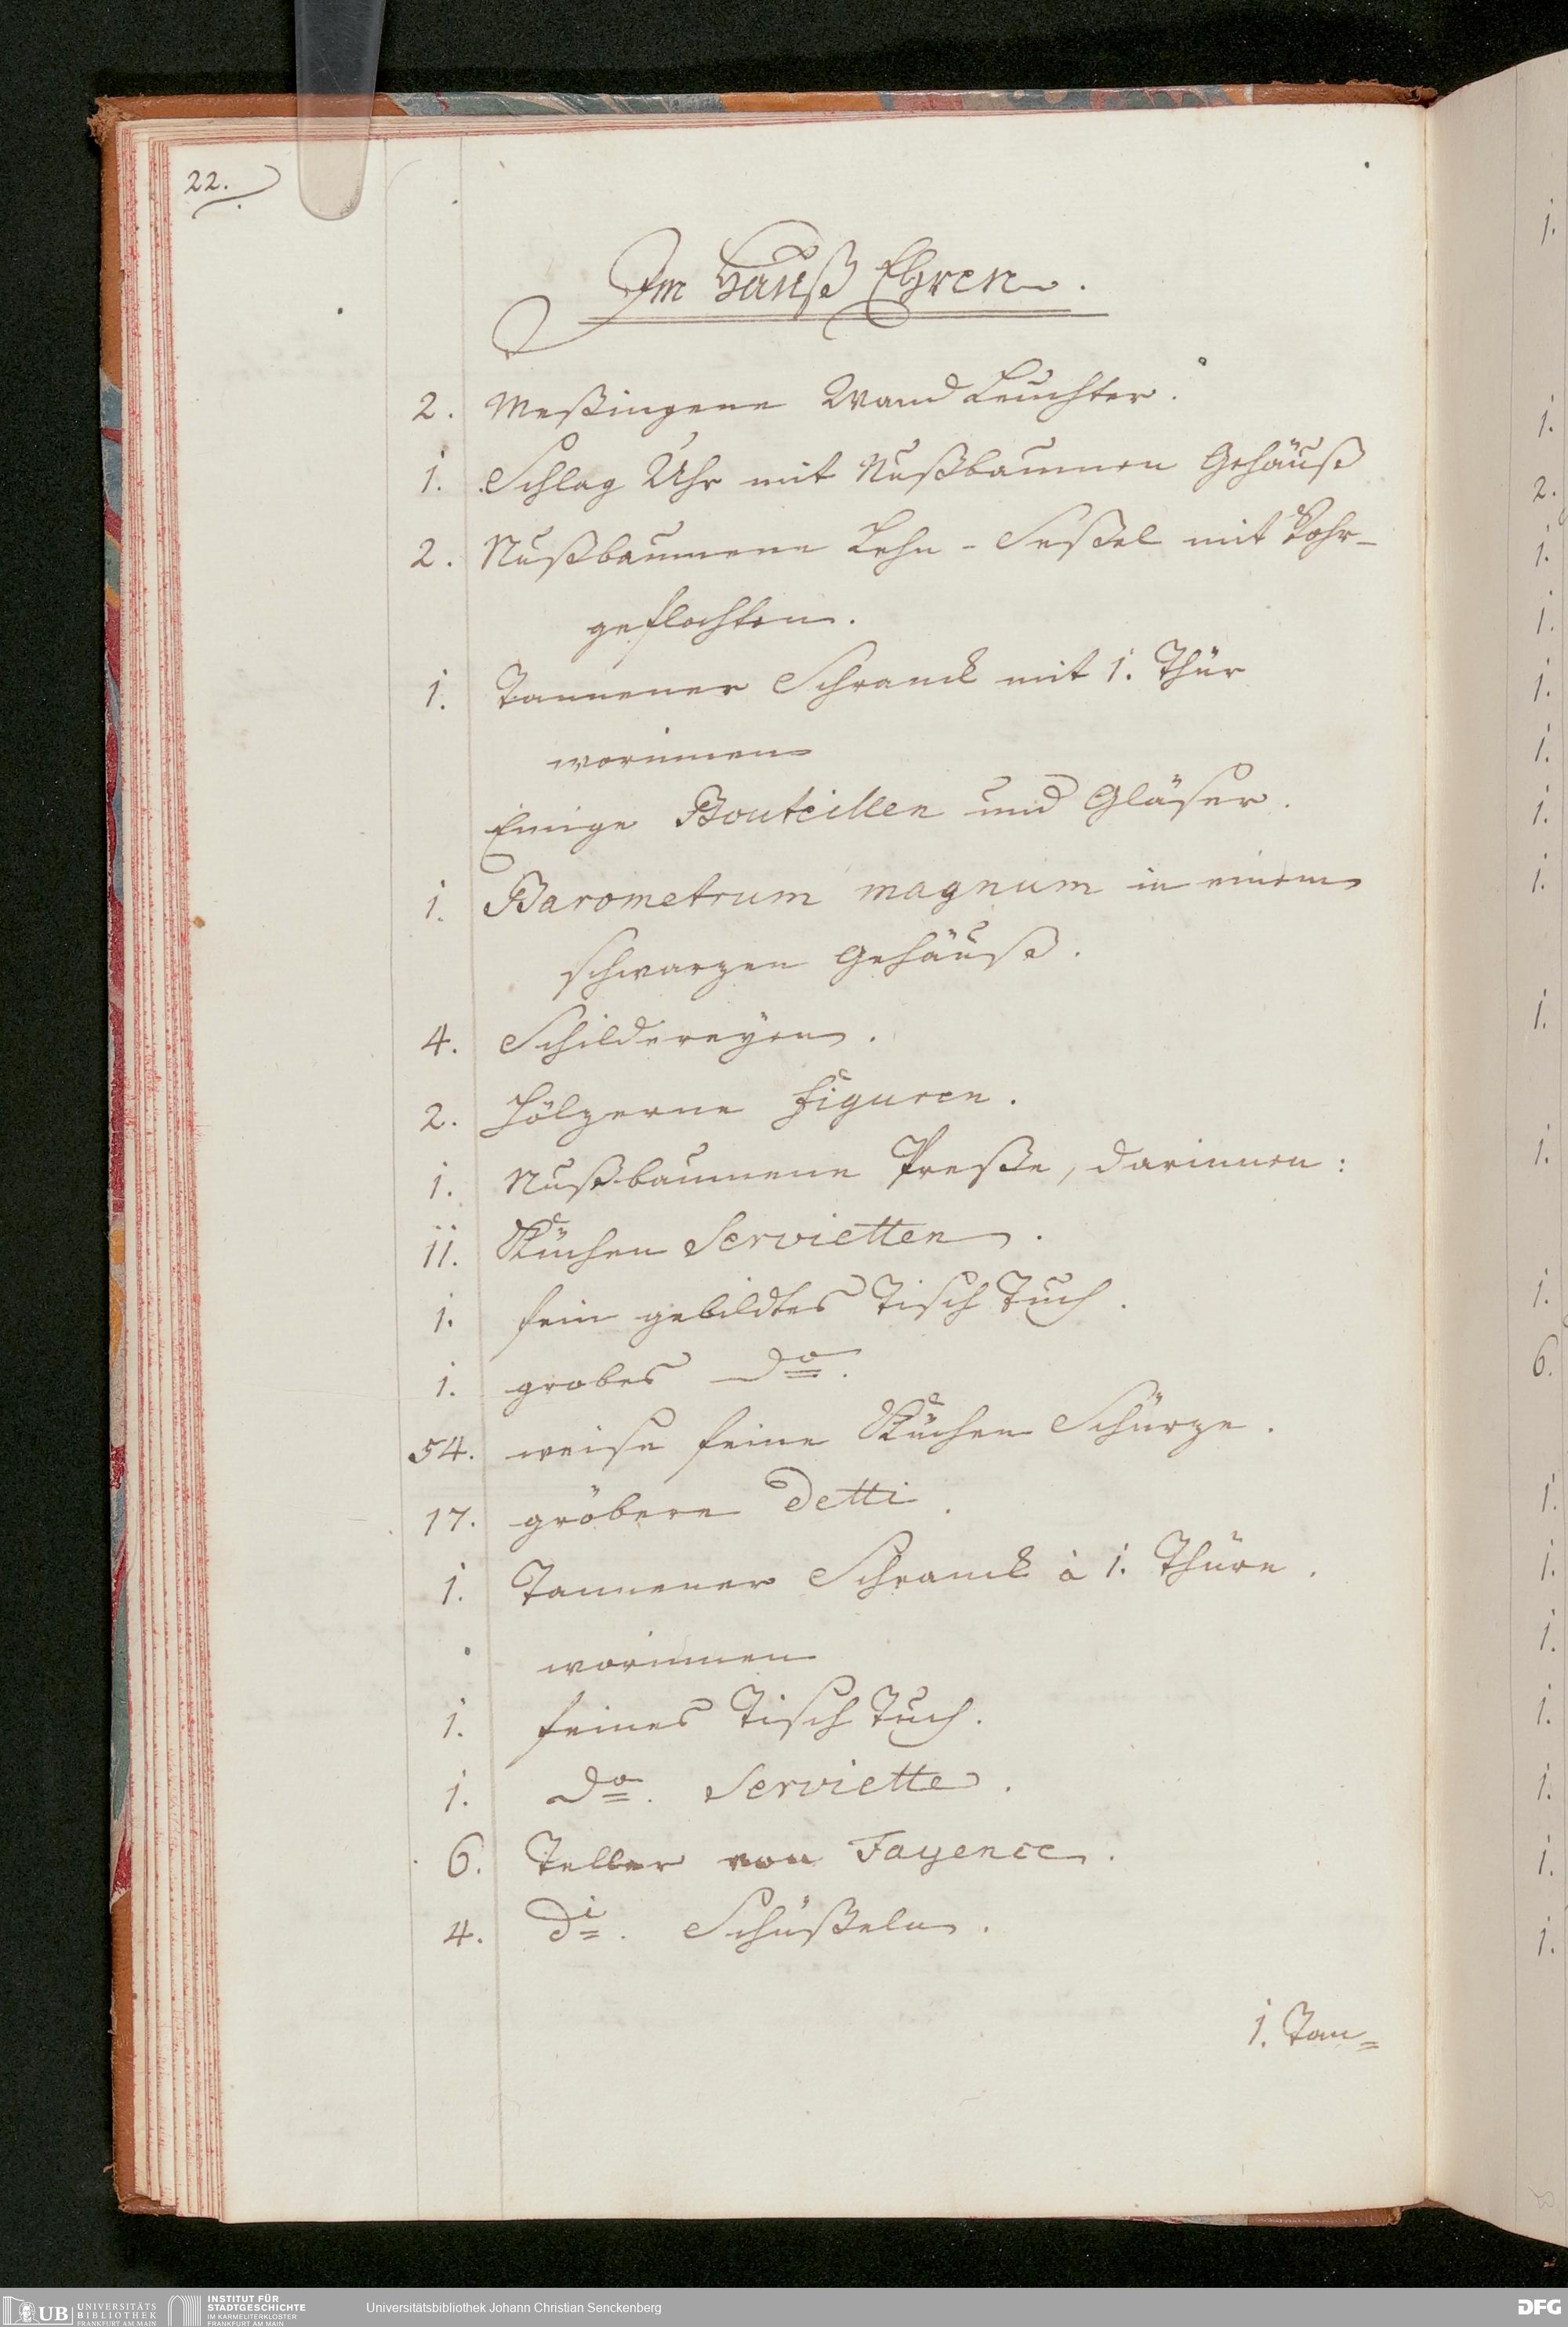 22.
Im Hauß Ehren.
2. Meßingene Wand Leuchter.
1. Schlag Uhr mit Nußbaumen Gehäuß
2. Nußbaumene Lehn - Seßel mit Rohr-
geflochten.
1. Tannener Schranck mit 1. Thür
worinnen
Einige Bouteillen und Gläser.
1. Barometrum magnum in einem
schwarzen Gehäuß.
4. Schildereyen.
2. Hölzerne Figuren.
1. Nußbaumene Preße, darinnen:
11. Küchen Servietten.
1. fein gebildtes Tisch Tuch.
1. grobes do.
54. weise feine Küchen Schürze.
17. gröbere detti.
1. Tannener Schranck à 1. Thüre.
worinnen
1. feines Tisch Tuch.
1. do. Serviette.
6. Teller von Fayence.
4. di. Schüßeln.
1. Tan=
1.
1.
2.
1.
1.
1.
1.
1.
1.
1.
1.
1.
6.
1.
1.
1.
1.
1.
1.
1.
UB UNIVERSITÄTS
BIBLIOTHEK
FRANKFURT AM MAIN
INSTITUT FÜR
STADTGESCHICHTE
IM KARMELITERKLOSTER
FRANKFURT AM MAIN
Universitätsbibliothek Johann Christian Senckenberg
DFG